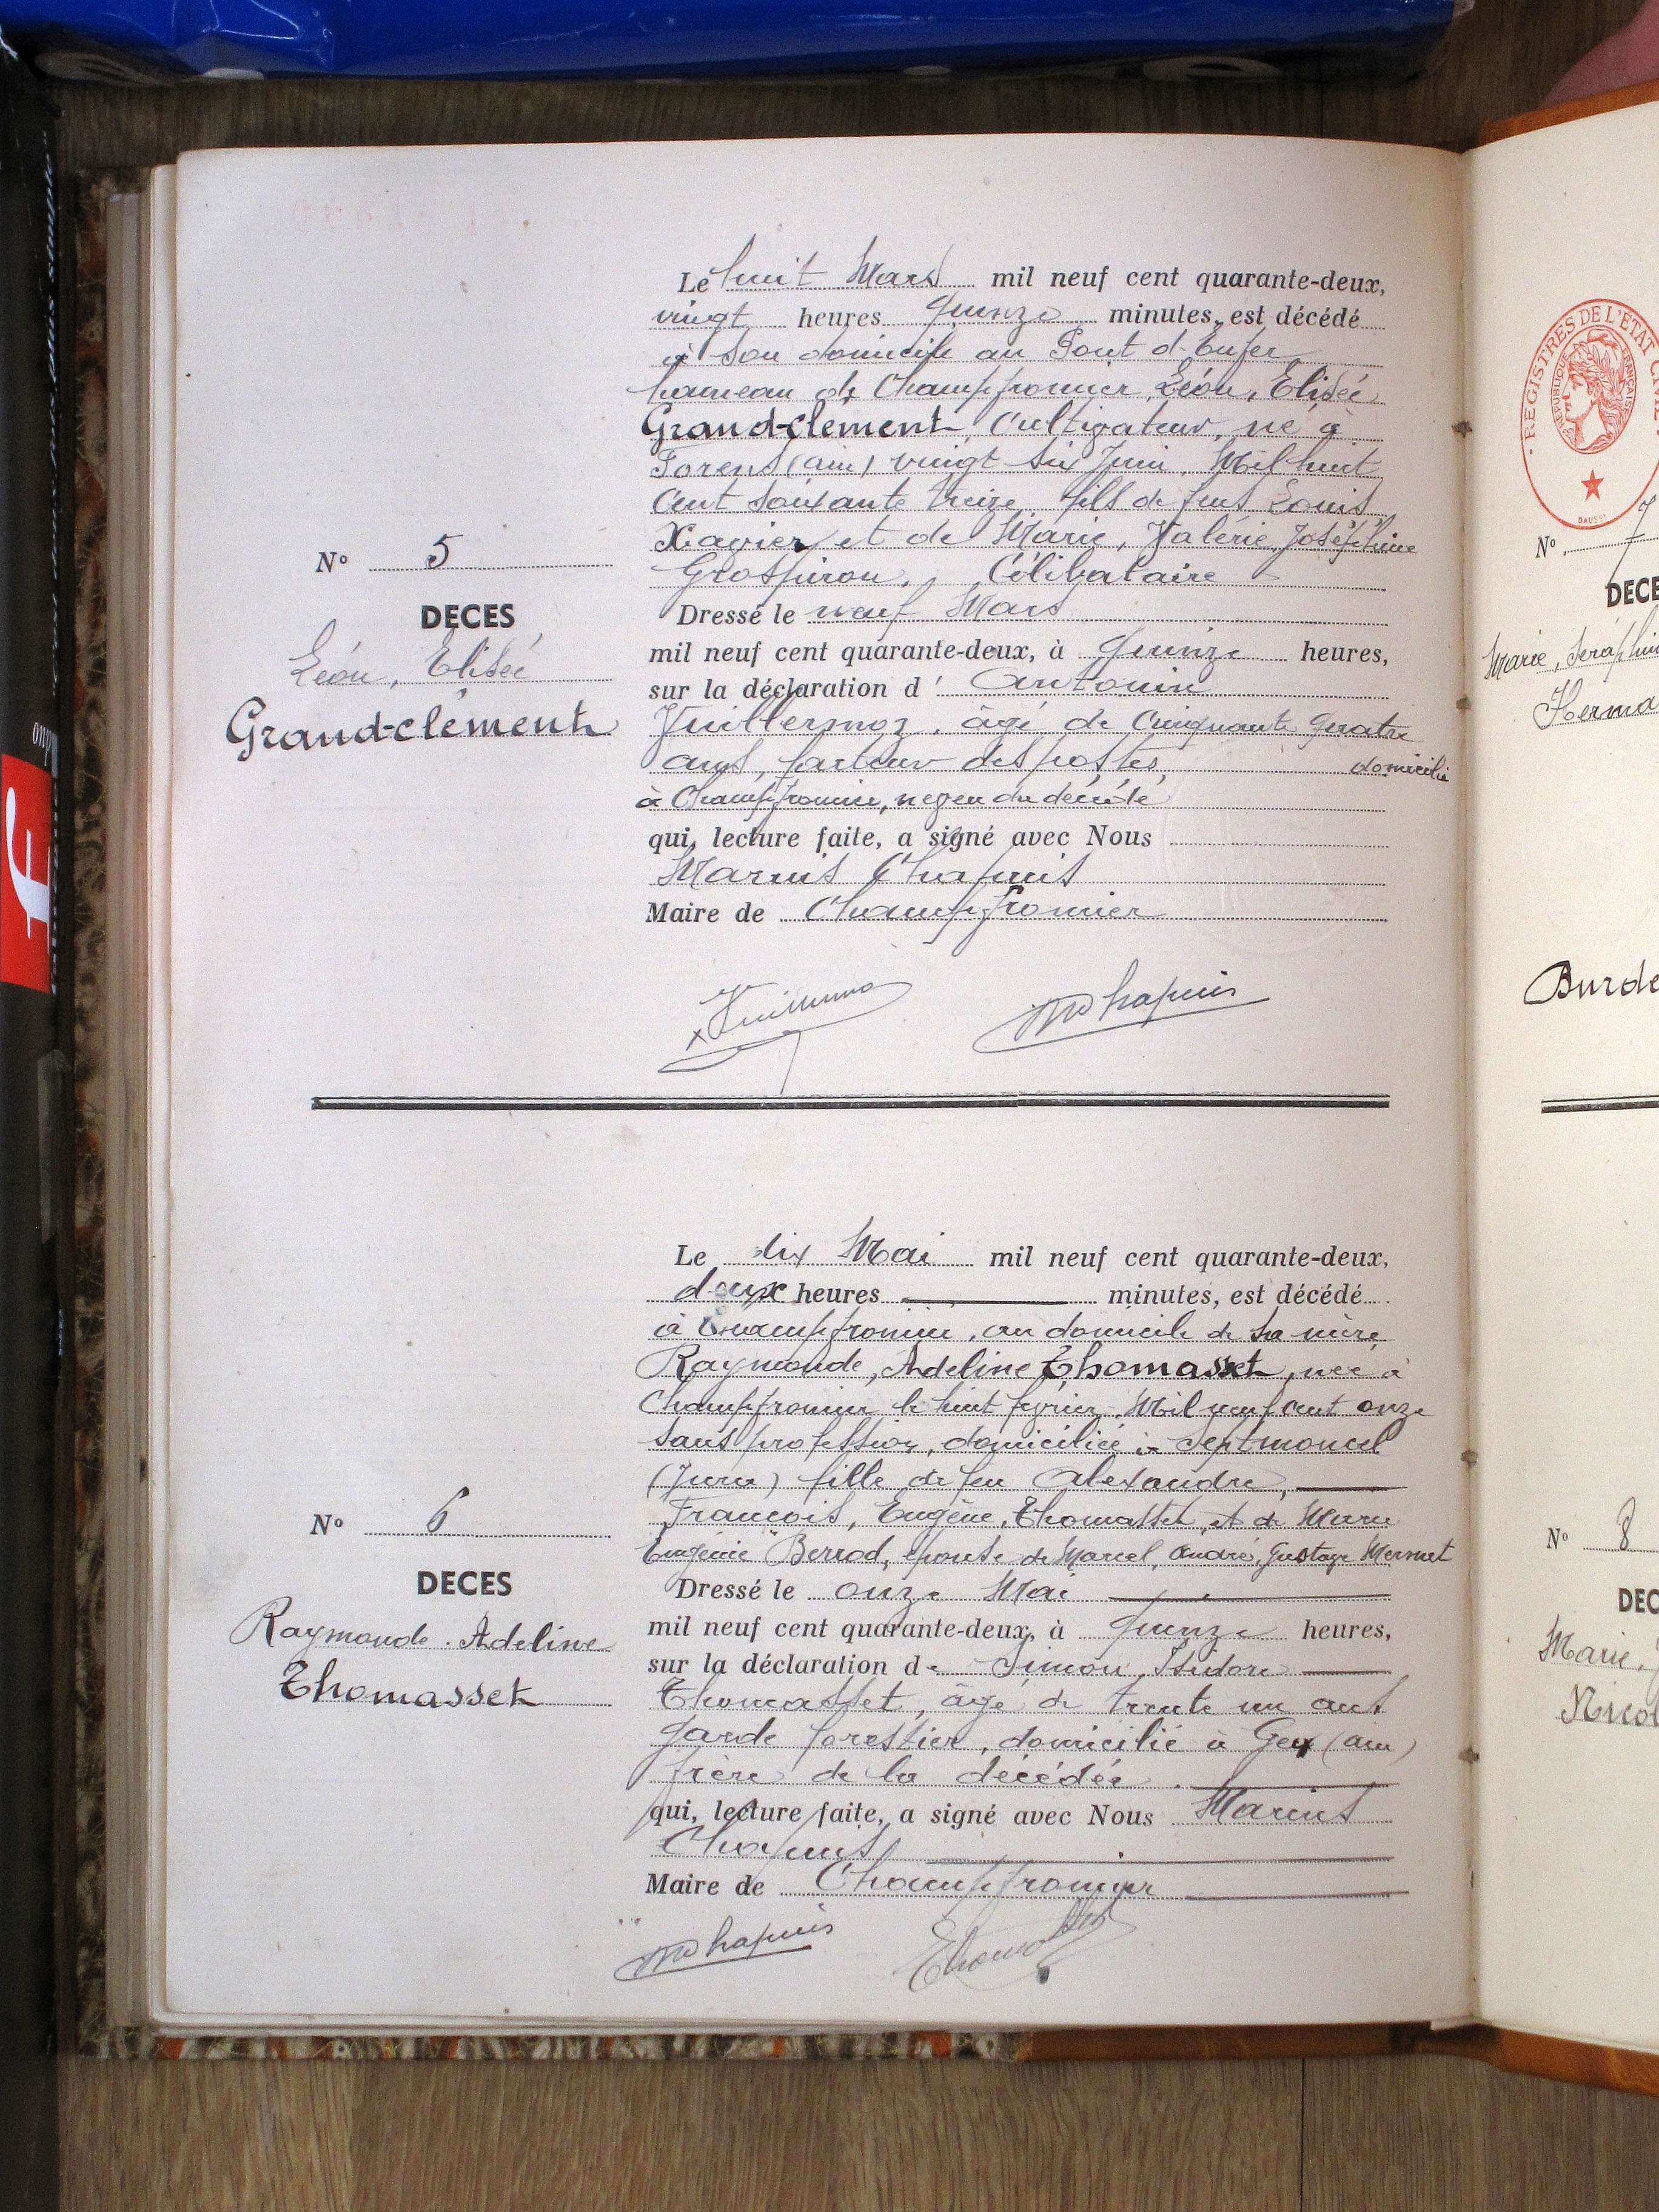 Le huit Mars mil neuf cent quarante-deux,
vingt heures quinze minutes, est décédé
à son domicile au Pont d'Enfer
hameau de Champfromier, Léon, Elisée
Grand-clément, Cultivateur, né à
Forens (ain) vingt six Juin, Mil huit
Cent soixante treize, fils de feus Louis
Xavier, et de Marie, Valérie, Joséphine
N° 5
Grospiron, Célibataire
DECES
Dressé le neuf Mars
Léon, Elisée
mil neuf cent quarante-deux, à quinze heures,
sur la déclaration d' Antonin
Grand-clément
Vuillermoz, âgé de Cinquante quatre
ans, facteur des postes, domicilié
à Champfromier, neveu du décédé
qui, lecture faite, a signé avec Nous
Marius Chapuis
Maire de Champfromier
MChapuis
Le dix Mai mil neuf cent quarante-deux,
deux heures minutes, est décédé
à Champfromier, au domicile de sa mère,
Raymonde, Adeline Thomasset, née à
Champfromier le huit février, Mil neuf cent onze
sans profession, domiciliée à Septmoncel
(Jura) fille de feu Alexandre,
N° 6
François, Eugène, Thomasset, et de Marie
Eugénie Berrod, épouse de Marcel, André, Gustave Mermet
DECES
Dressé le onze Mai
Raymonde. Adeline
mil neuf cent quarante-deux, à quinze heures,
sur la déclaration de Simon, Isidore
Thomasset
Thomasset, âgé de trente un ans
garde forestier, domicilié à Gex (ain)
frère de la décédée.
qui, lecture faite, a signé avec Nous Marius
Chapuis
Maire de Champfromier
MChapuis Thomasset
REGISTRES DE L'ETAT CIVIL
REPUBLIQUE FRANÇAISE
N° 7
DECE
Marie, Séraphin
Herma
Burde
N° 8
DEC
Marie,
Nicol